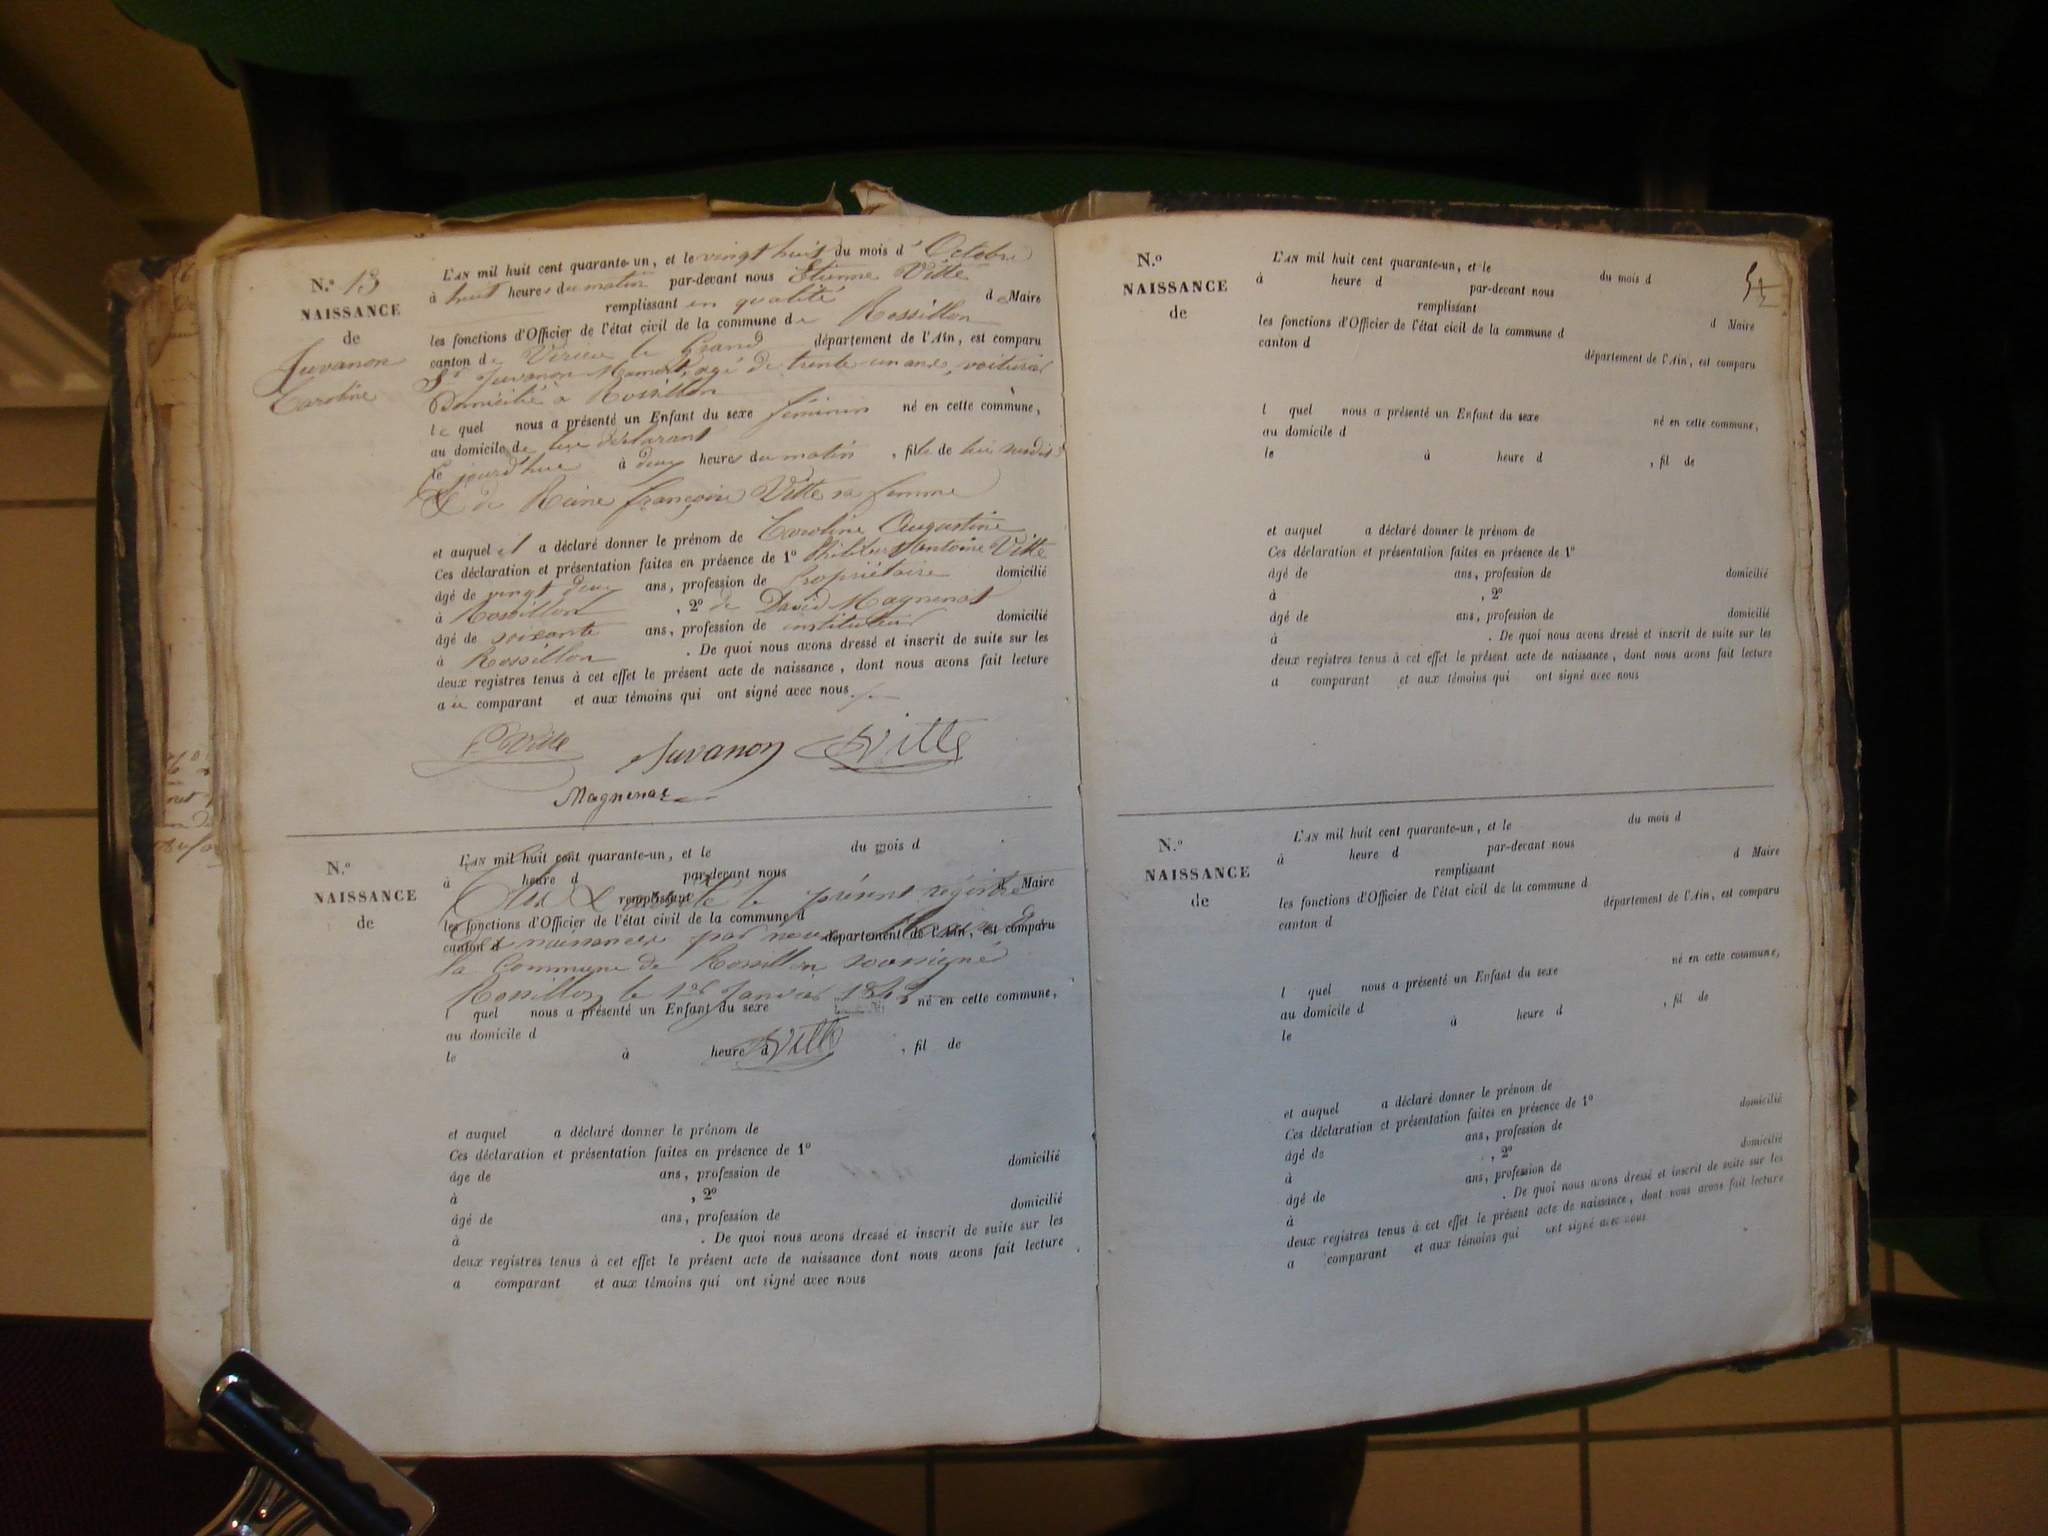 N.º 13
NAISSANCE
de
Juvanon
Caroline
L'AN mil huit cent quarante-un, et le vingt huit du mois d' Octobre
à huit heures du matin par-devant nous Etienne Vitte
remplissant en qualité de Maire
les fonctions d'Officier de l'état civil de la commune de Rossillon
canton de Virieu le Grand département de l'Ain, est comparu
Sr Juvanon agé de trente un ans, voiturier
Domicilié à Rossillon
lequel nous a présenté un Enfant du sexe féminin né en cette commune,
au domicile de lui déclarant
le jourd'hui à deux heures du matin, fille de lui susdit
& de Reine Françoise Vitte sa femme
et auquel il a déclaré donner le prénom de Caroline Augustine
Ces déclaration et présentation faites en présence de 1º Philibert Antoine Vitte
âgé de vingt deux ans, profession de Propriétaire domicilié
à Rossillon, 2º de David Magnenat
âgé de soixante ans, profession de instituteur domicilié
à Rossillon. De quoi nous avons dressé et inscrit de suite sur les
deux registres tenus à cet effet le présent acte de naissance, dont nous avons fait lecture
au comparant et aux témoins qui ont signé avec nous
Vitte Juvanon Vitte
Magnenat
N.º
NAISSANCE
de
L'AN mil huit cent quarante-un, et le du mois d
à heure d par-devant nous
remplissant d Maire
Clos & arrêté le présent registre
les fonctions d'Officier de l'état civil de la commune d
des naissances par nous Maire de
canton d département de l'Ain, est comparu
la Commune de Rossillon soussigné
Rossillon le 1er Janvier 1842
l quel nous a présenté un Enfant du sexe né en cette commune,
au domicile d
Vitte
le à heure d , fil de
et auquel a déclaré donner le prénom de
Ces déclaration et présentation faites en présence de 1º
âge de ans, profession de domicilié
à , 2º
âgé de ans, profession de domicilié
à . De quoi nous avons dressé et inscrit de suite sur les
deux registres tenus à cet effet le présent acte de naissance dont nous avons fait lecture
a comparant et aux témoins qui ont signé avec nous
N.º
NAISSANCE
de
L'AN mil huit cent quarante-un, et le du mois d
à heure d par-devant nous
remplissant d Maire
les fonctions d'Officier de l'état civil de la commune d
canton d département de l'Ain, est comparu
l quel nous a présenté un Enfant du sexe né en cette commune,
au domicile d
le à heure d , fil de
et auquel a déclaré donner le prénom de
Ces déclaration et présentation faites en présence de 1º
âgé de ans, profession de domicilié
à , 2º
âgé de ans, profession de domicilié
à . De quoi nous avons dressé et inscrit de suite sur les
deux registres tenus à cet effet le présent acte de naissance, dont nous avons fait lecture
a comparant et aux témoins qui ont signé avec nous
N.º
NAISSANCE
de
L'AN mil huit cent quarante-un, et le du mois d
à heure d par-devant nous
remplissant d Maire
les fonctions d'Officier de l'état civil de la commune d
canton d département de l'Ain, est comparu
l quel nous a présenté un Enfant du sexe né en cette commune,
au domicile d
le à heure d , fil de
et auquel a déclaré donner le prénom de
Ces déclaration et présentation faites en présence de 1º
âgé de ans, profession de domicilié
à , 2º
âgé de ans, profession de domicilié
à . De quoi nous avons dressé et inscrit de suite sur les
deux registres tenus à cet effet le présent acte de naissance, dont nous avons fait lecture
a comparant et aux témoins qui ont signé avec nous